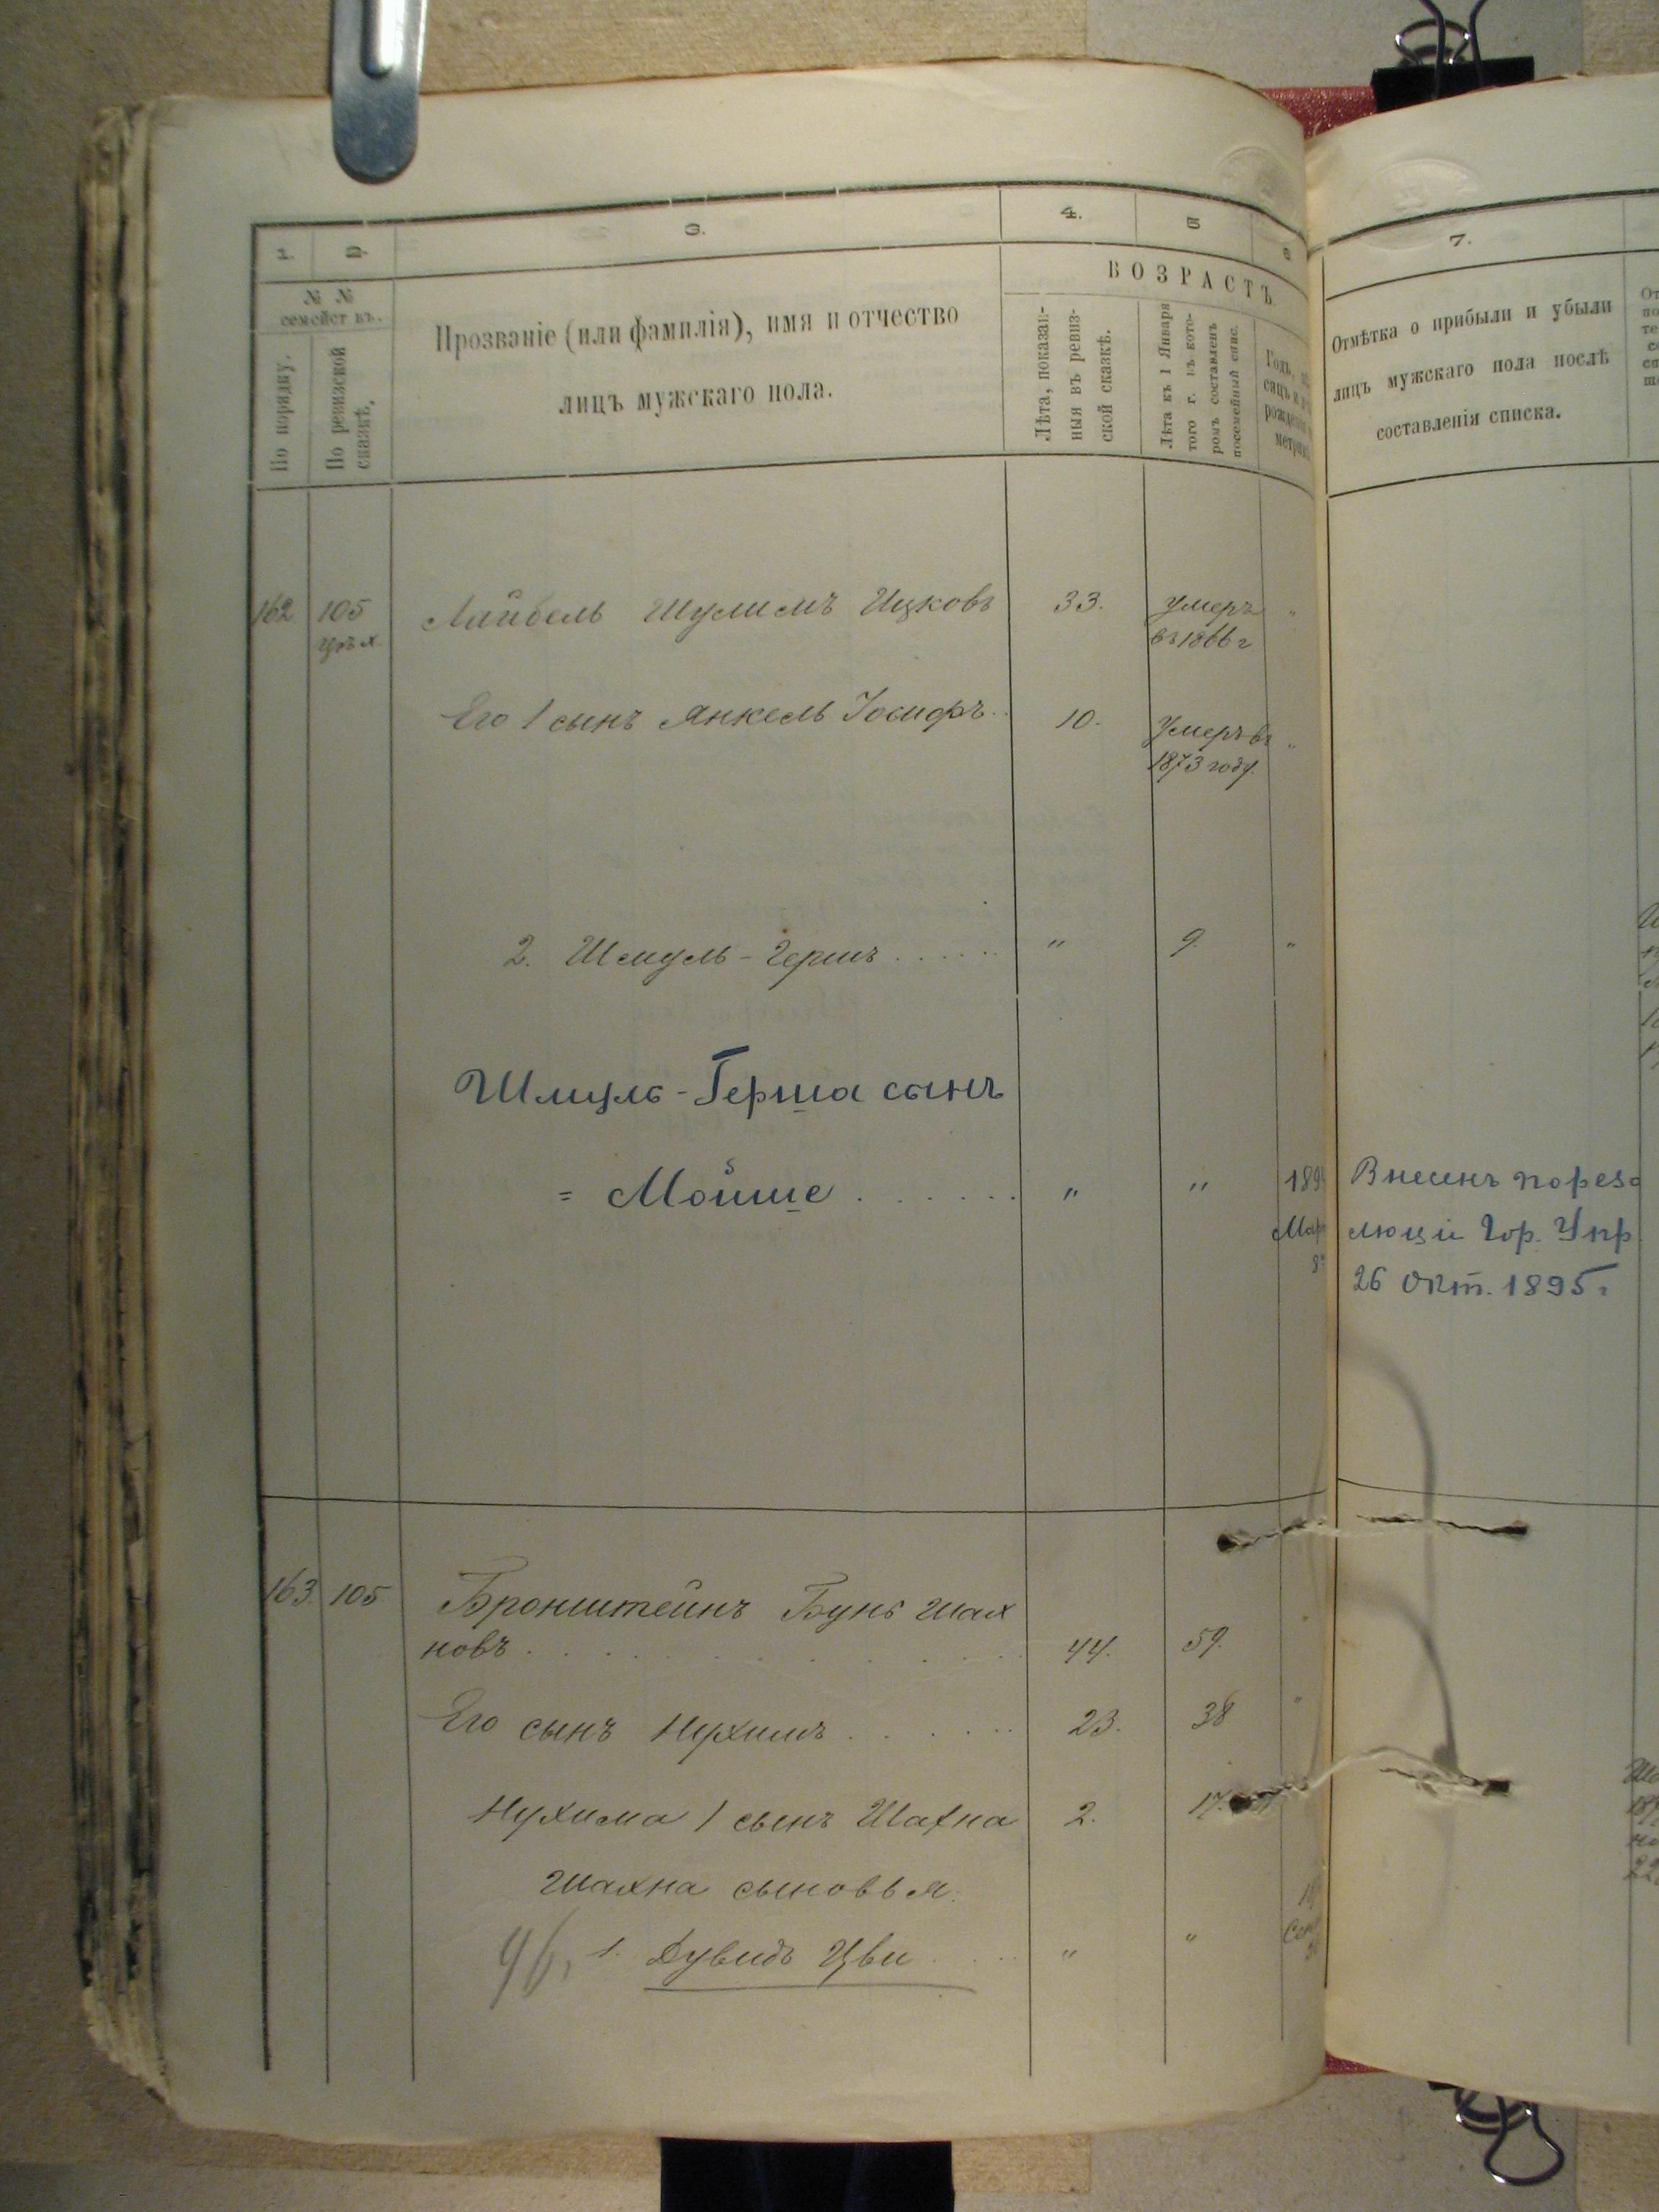 1. 2. 3. 4. 5 6
№ № семействъ.
По порядку.
По ревизской сказкѣ.
Прозваніе (или фамилія), имя и отчество
лицъ мужскаго пола.
ВОЗРАСТЪ
Лѣта, показан-
ныя въ ревиз-
ской сказкѣ.
Лѣта къ 1 Января
того г. въ кото-
ромъ составленъ
посемейный спис.
Годъ,
рожденія
7.
Отмѣтка о прибыли и убыли
лицъ мужскаго пола послѣ
составленія списка.
162 105 Шулимъ Ицковъ 33. умеръ "
въ 1866 г
Его 1 сынъ Янкель Іосифъ.. 10. Умеръ въ "
1873 году.
2. Шмуль-Герш ...... " 9. "
Шмуль-Герша сынъ
= Мойше ....... " " 189 Внесенъ по резо
Мар люціи Гор. Упр
8 26 Окт. 1895г
163. 105 Бронштейнъ Бунь Шах
новъ . . . . . 44. 59. "
Его сынъ Нухимъ . . . . . 23. 38 "
Нухима 1 сынъ Шахна 2. 17.
Шахна сыновья.
96, 1. Дувидъ Цви . . . . " "